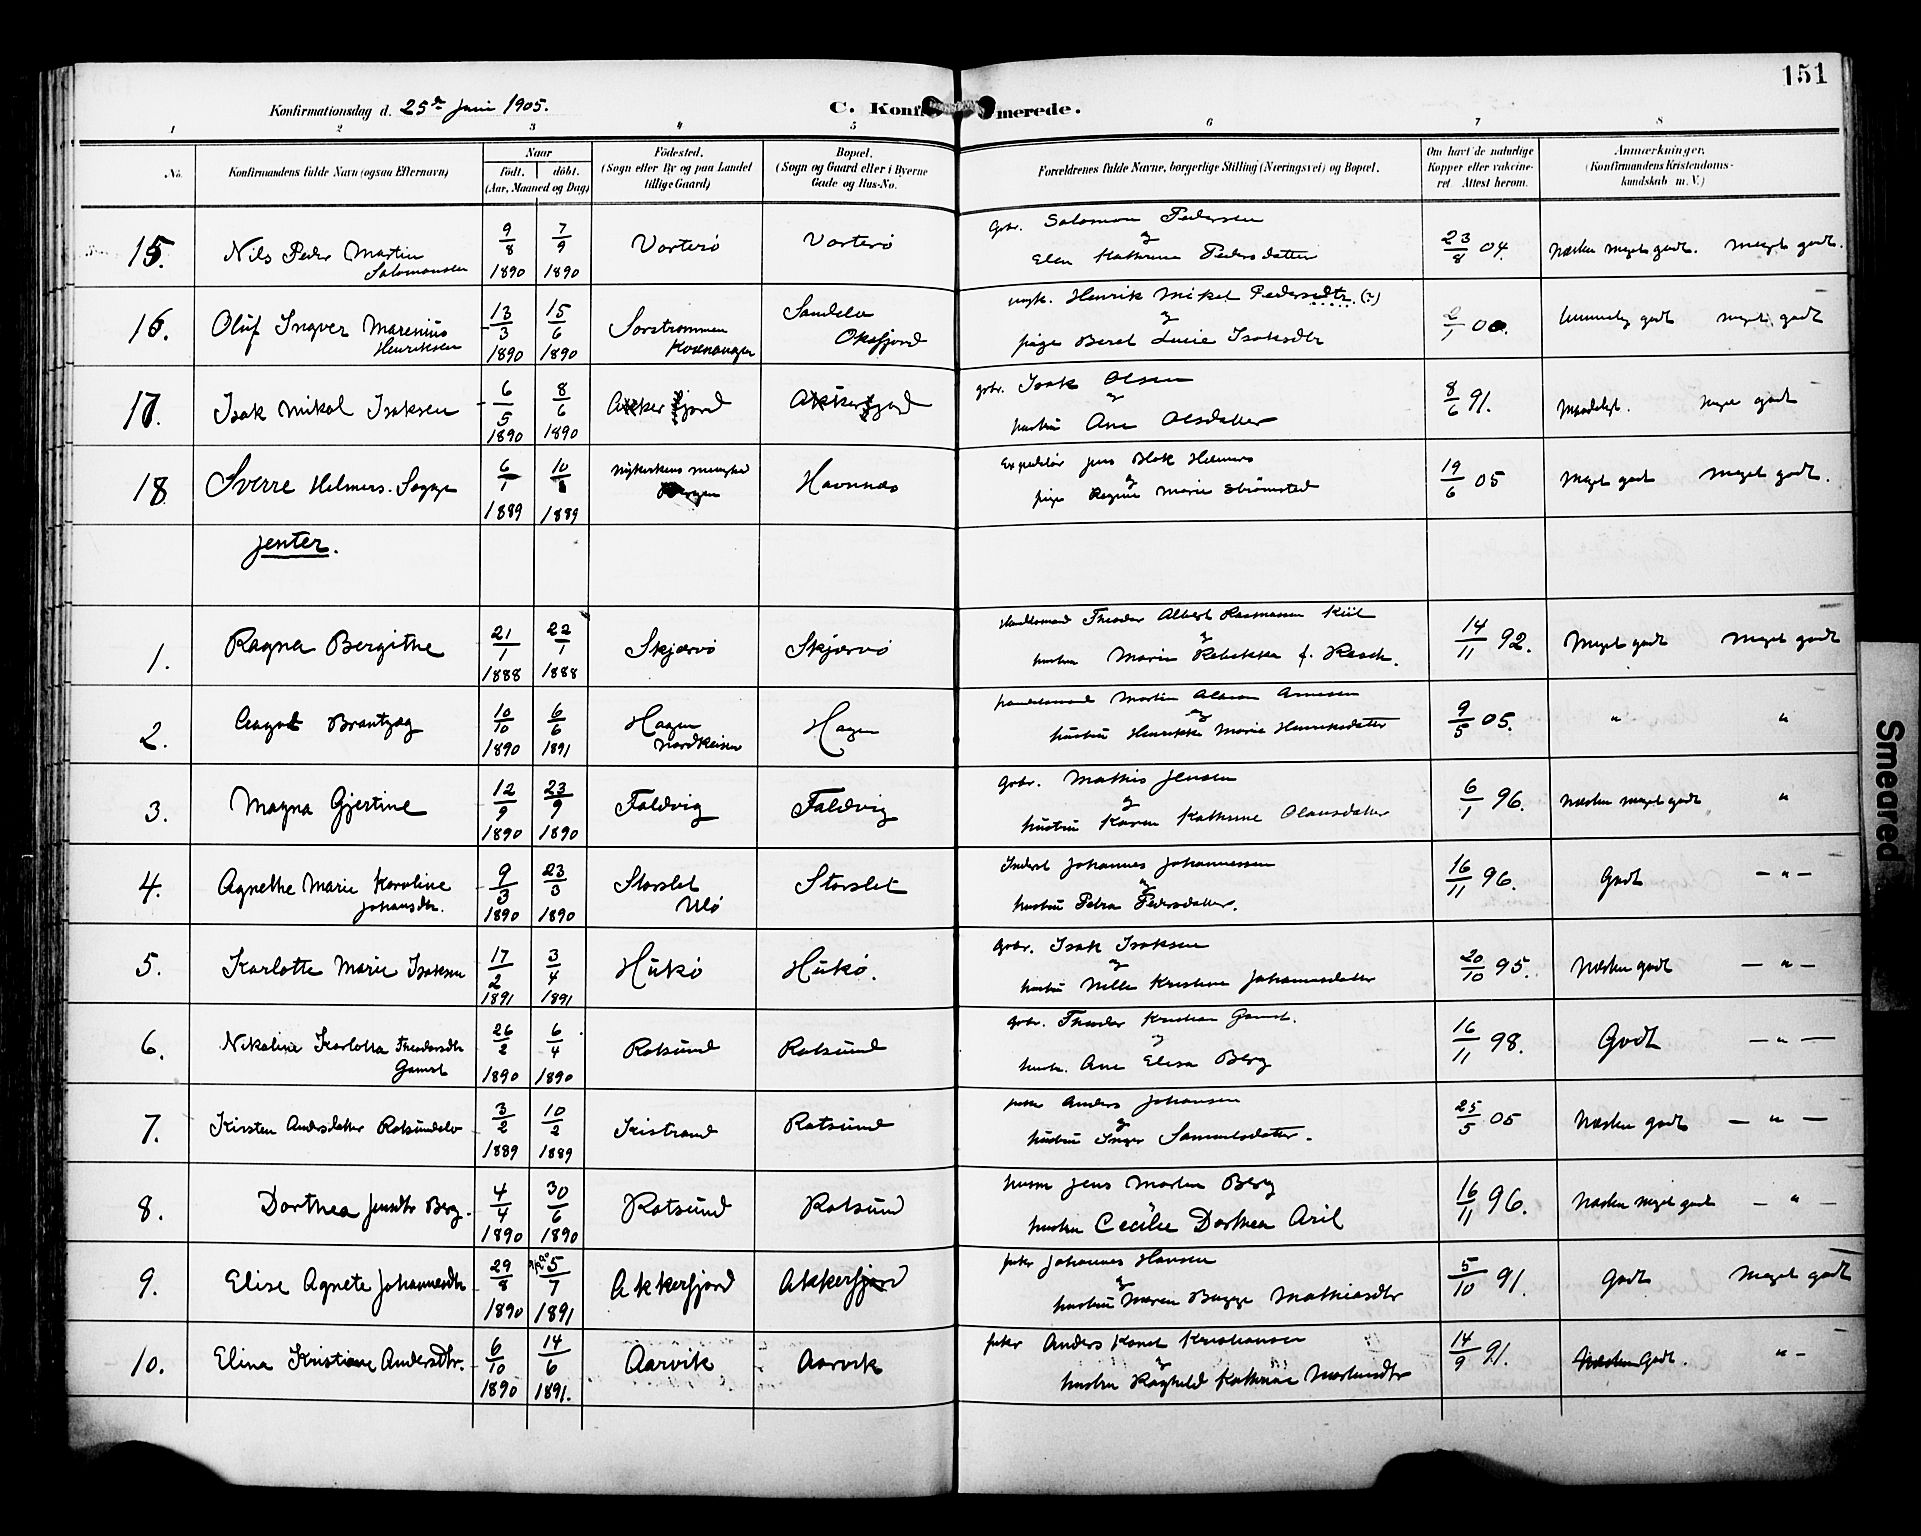 151
Konfirmationsdag d. 25de Juni 1905.
C. Konfirmerede.
1 2 3 4 5 6 7 8
No.
Konfirmandens fulde Navn (ogsaa Efternavn)
Naar
født. døbt.
(Aar, Maaned og Dag)
Fødested.
(Sogn eller By og paa Landet
tillige Gaard)
Bopæl.
(Sogn og Gaard eller i Byerne
Gade og Hus-No.
Forældrenes fulde Navne, borgerlige Stilling (Næringsvei) og Bopæl.
Om havt de naturlige
Kopper eller vakcine-
ret Attest herom.
Anmærkninger.
(Konfirmandens Kristendoms-
kundskab m. V.)
15. Nils Peder Martin Salomonsen 9/8 1890 7/9 1890 Vorterø Vorterø
Gbr. Salomon Pedersen
og
Elen Kathrine Pedersdatter
23/8 04. Næsten meget godt. meget godt.
16. Oluf Ingver Marenius Henriksen 13/3 1890 15/6 1890 Sorstrømmen Kvænangen Sandelv Oksfjord
ungk. Henrik Mikel Pedersdtr. (?)
og
pige Beret Lucie Isaksdtr
2/1 00. temmelig godt meget godt
17. Isak Mikal Isaksen 6/5 1890 8/6 1890 Akkerfjord Akkerfjord
gbr. Isak Olsen
og
hustru Ane Olsdatter
8/6 91. Maadeligt. meget godt
18. Sverre Helmers. Sagge 6/1 1889 10/8 1889 Nykirkens menighed Bergen Havnnæs
Expeditør Jens Blok Helmers
og
pige Regine Marie Strømsted
19/6 05 Meget godt meget godt.
Jenter.
1. Ragna Bergithe 21/1 1888 22/1 1888 Skjærvø Skjærvø
Handelsmand Theodor Albert Rasmussen Kiil
og
hustru Marie Rebekka f. Resch.
14/11 92. Meget godt meget godt
2. Aagot Brantzæg 10/10 1890 6/6 1891 Hagen Nordreisen Hagen
handelsmand Martin Arnesen
og
hustru Henrikke Marie Henriksdatter
9/5 05. " "
3. Magna Gjertine 12/9 1890 23/9 1890 Faldvig Faldvig
Gbr. Mathis Jensen
og
hustru Karen Kathrine Olausdatter
6/1 96. Næsten meget godt "
4. Agnethe Marie Karoline Johansdtr. 9/3 1890 23/3 1890 Storslet Ulø Storslet
Inderst Johannes Johannessen
og
hustru Petra Pedersdatter.
16/11 96. Godt — " —
5. Karlotte Marie Isaksen 17/2 1891 3/4 1891 Hukø Hukø.
Gbr. Isak Isaksen
og
hustru Nille Kristine Johannesdatter
20/10 95. Næsten godt — " —
6. Nikoline Karlotta Theodorsdtr Gamst 26/2 1890 6/4 1890 Rotsund Rotsund
Gbr. Theodor Kristian Gamst.
og
hustr. Ane Elisa Berg
16/11 98. Godt — " —
7. Kirsten Andersdatter Rotsundelv 3/2 1889 10/2 1889 Kistrand Rotsund
fisker Anders Johansen
og
hustru Inger Samuelsdatter.
25/5 05 Næsten godt — " —
8. Dorthea Jensdtr Berg. 4/4 1890 30/6 1890 Rotsund Rotsund
husm Jens Martin Berg
hustru Cecilie Dorthea Aril
16/11 96. Næsten meget godt — " —
9. Elise Agnete Johannesdtr 29/8 1890 5/7 1891 Akkerfjord Akkerfjord
fisker Johannes Hansen
og
hustru Maren Bugge Mathiasdtr
5/10 91. Godt Meget godt
10. Elina Kristiane Andersdtr. 6/10 1890 14/6 1891. Aarvik Aarvik
fisker Anders Kornel Kristiansen
og
hustru Ragnhild Kathrine Martinsdtr
14/9 91. Næsten Godt. " -
Smeared